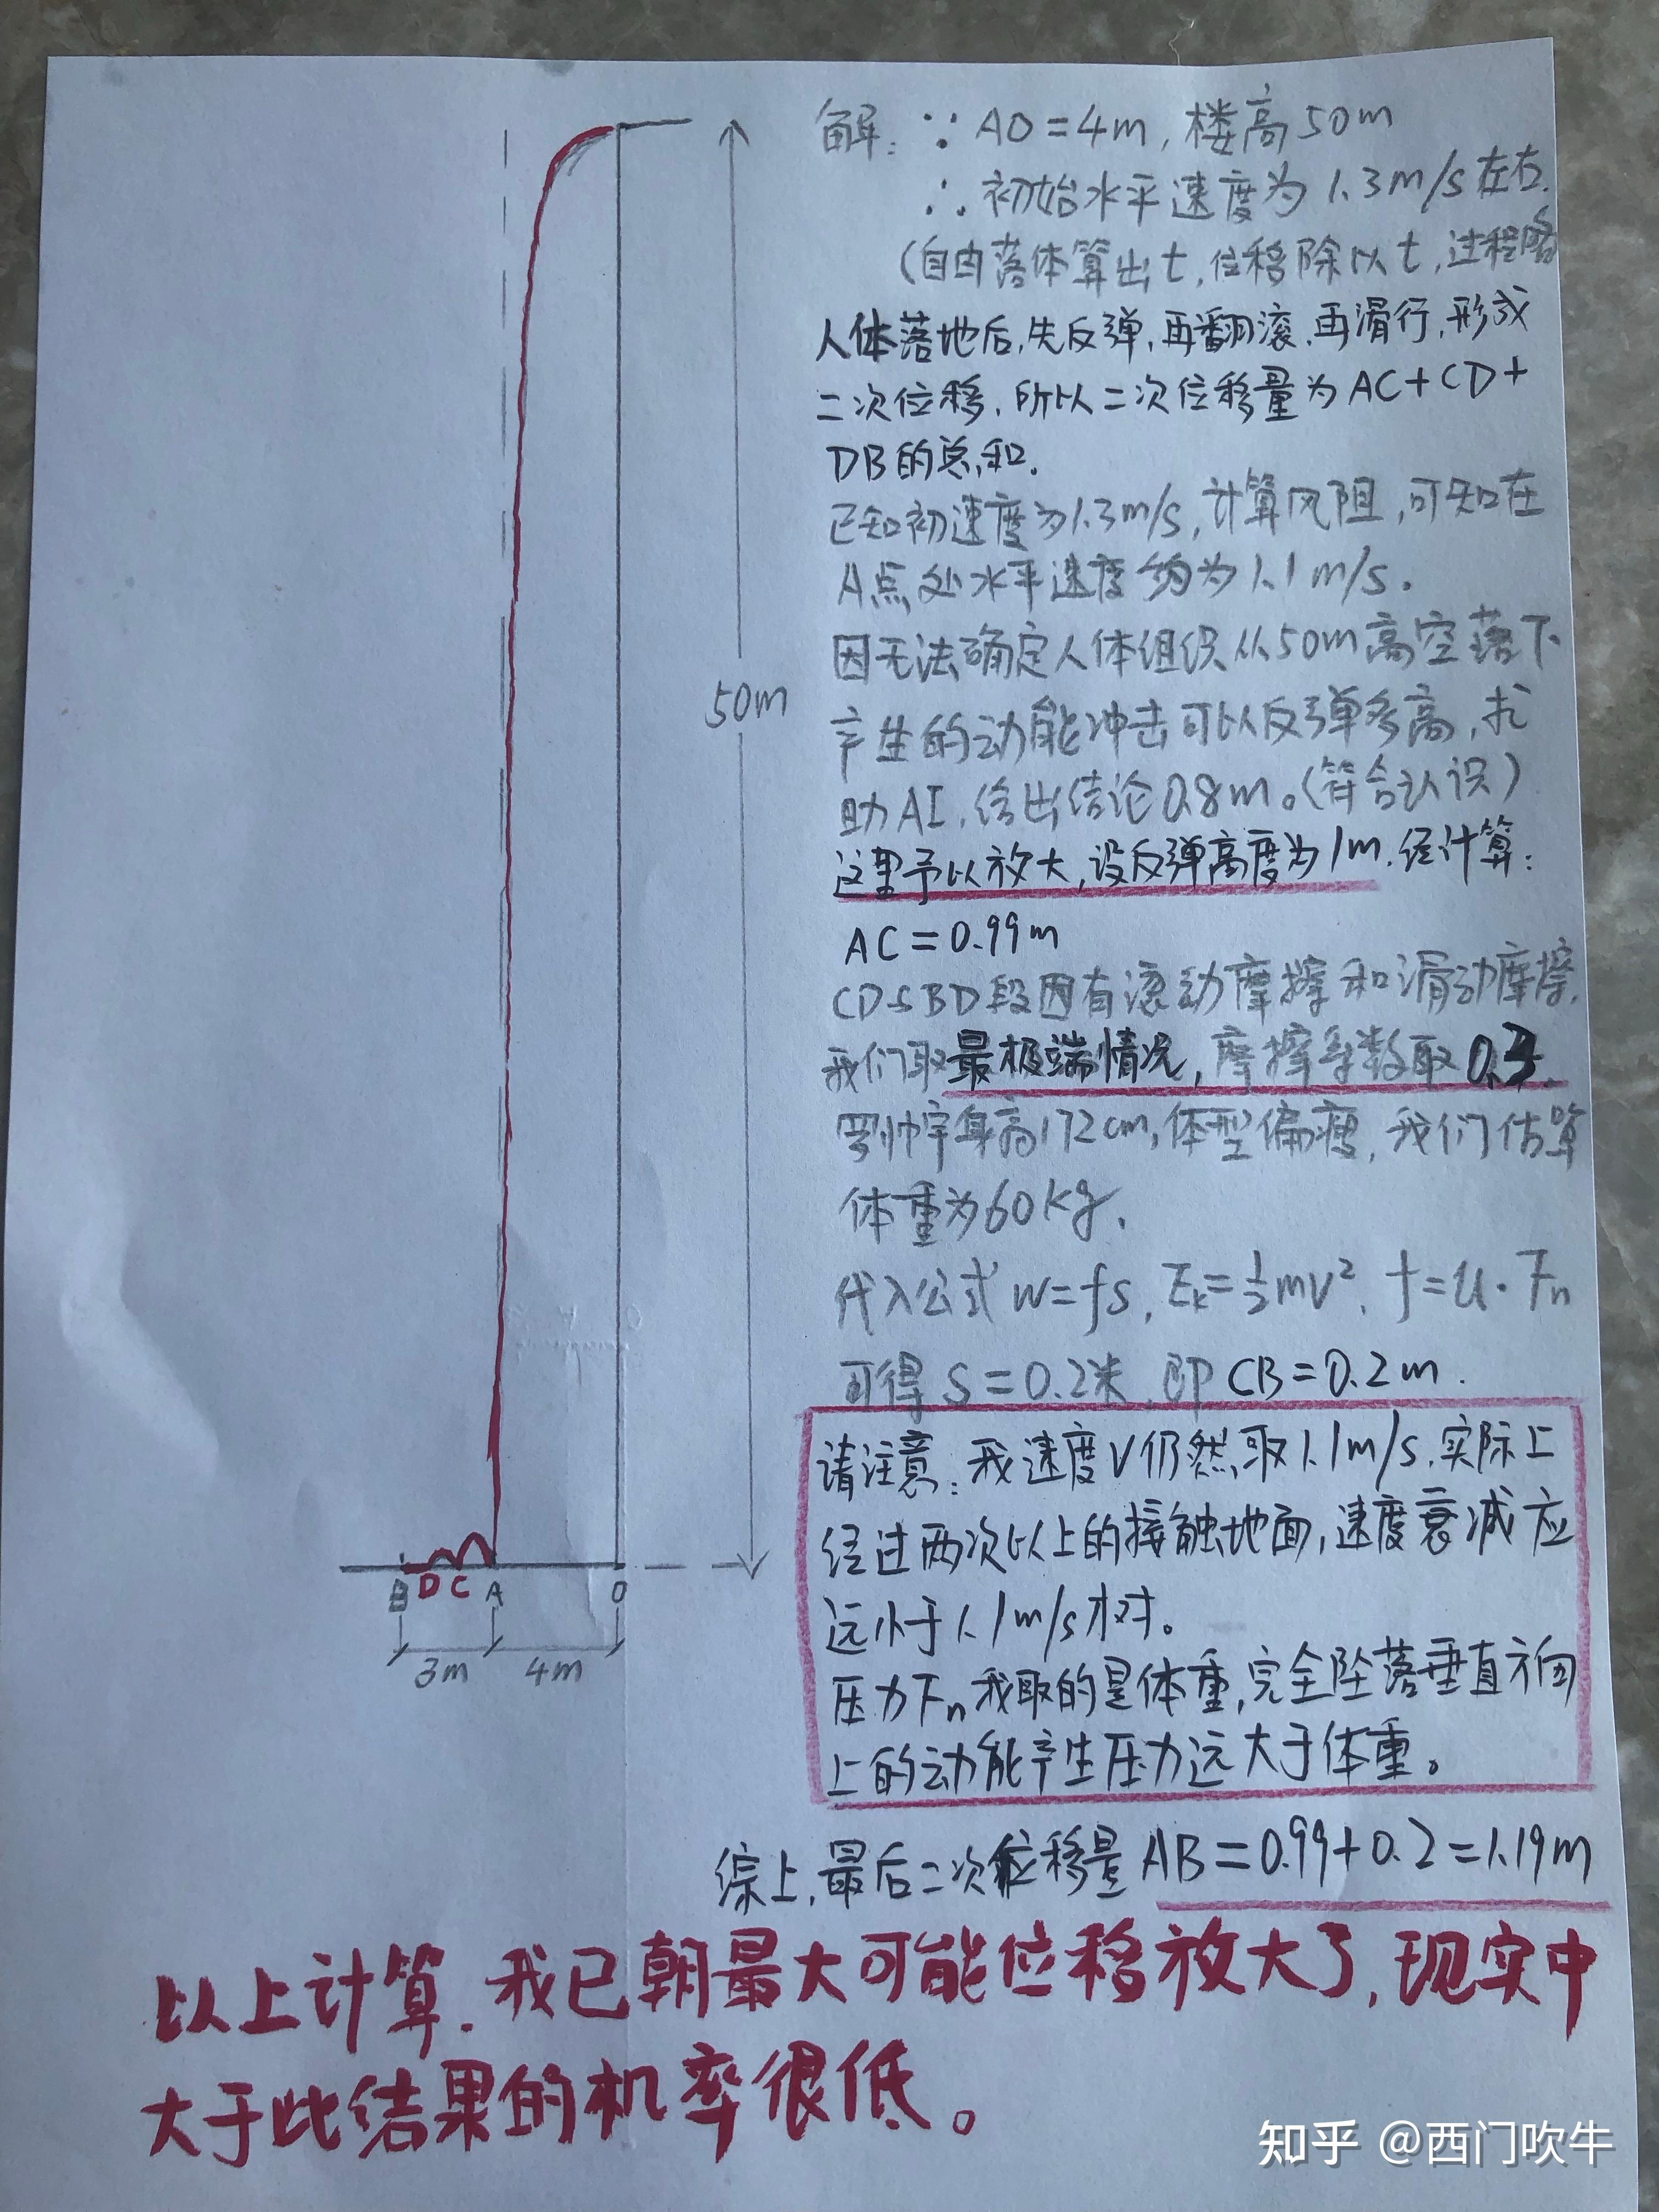 解：∵AO=4m，楼高50m
∴初始水平速度为1.3m/s左右.
（自由落体算出t，位移除以t，过程略
人体落地后，先反弹，再翻滚，再滑行，形成
二次位移，所以二次位移量为AC+CD+
DB的总和.
已知初速度为1.3m/s，计算风阻，可知在
A点处水平速度约为1.1m/s.
因无法确定人体组织从50m高空落下
产生的动能冲击可以反弹多高，求
助AI，给出结论0.8m。（符合认识）
这里予以放大，设反弹高度为1m，经计算：
AC=0.99m
CD与BD段因有滚动摩擦和滑动摩擦，
我们取最极端情况，摩擦系数取0.3.
罗帅宇身高172cm，体型偏瘦，我们估算
体重为60kg，
代入公式W=fs，Ek=½mv²，f=u·Fn
可得S=0.2米，即CB=0.2m.
请注意：我速度V仍然取1.1m/s，实际上
经过两次以上的接触地面，速度衰减应
远小于1.1m/s才对。
压力Fn我取的是体重，完全坠落垂直方向
上的动能产生压力远大于体重。
综上，最后二次位移是AB=0.99+0.2=1.19m
以上计算，我已朝最大可能位移放大了，现实中
大于此结果的机率很低。
50m
B D C A O
3m 4m
知乎 @西门吹牛